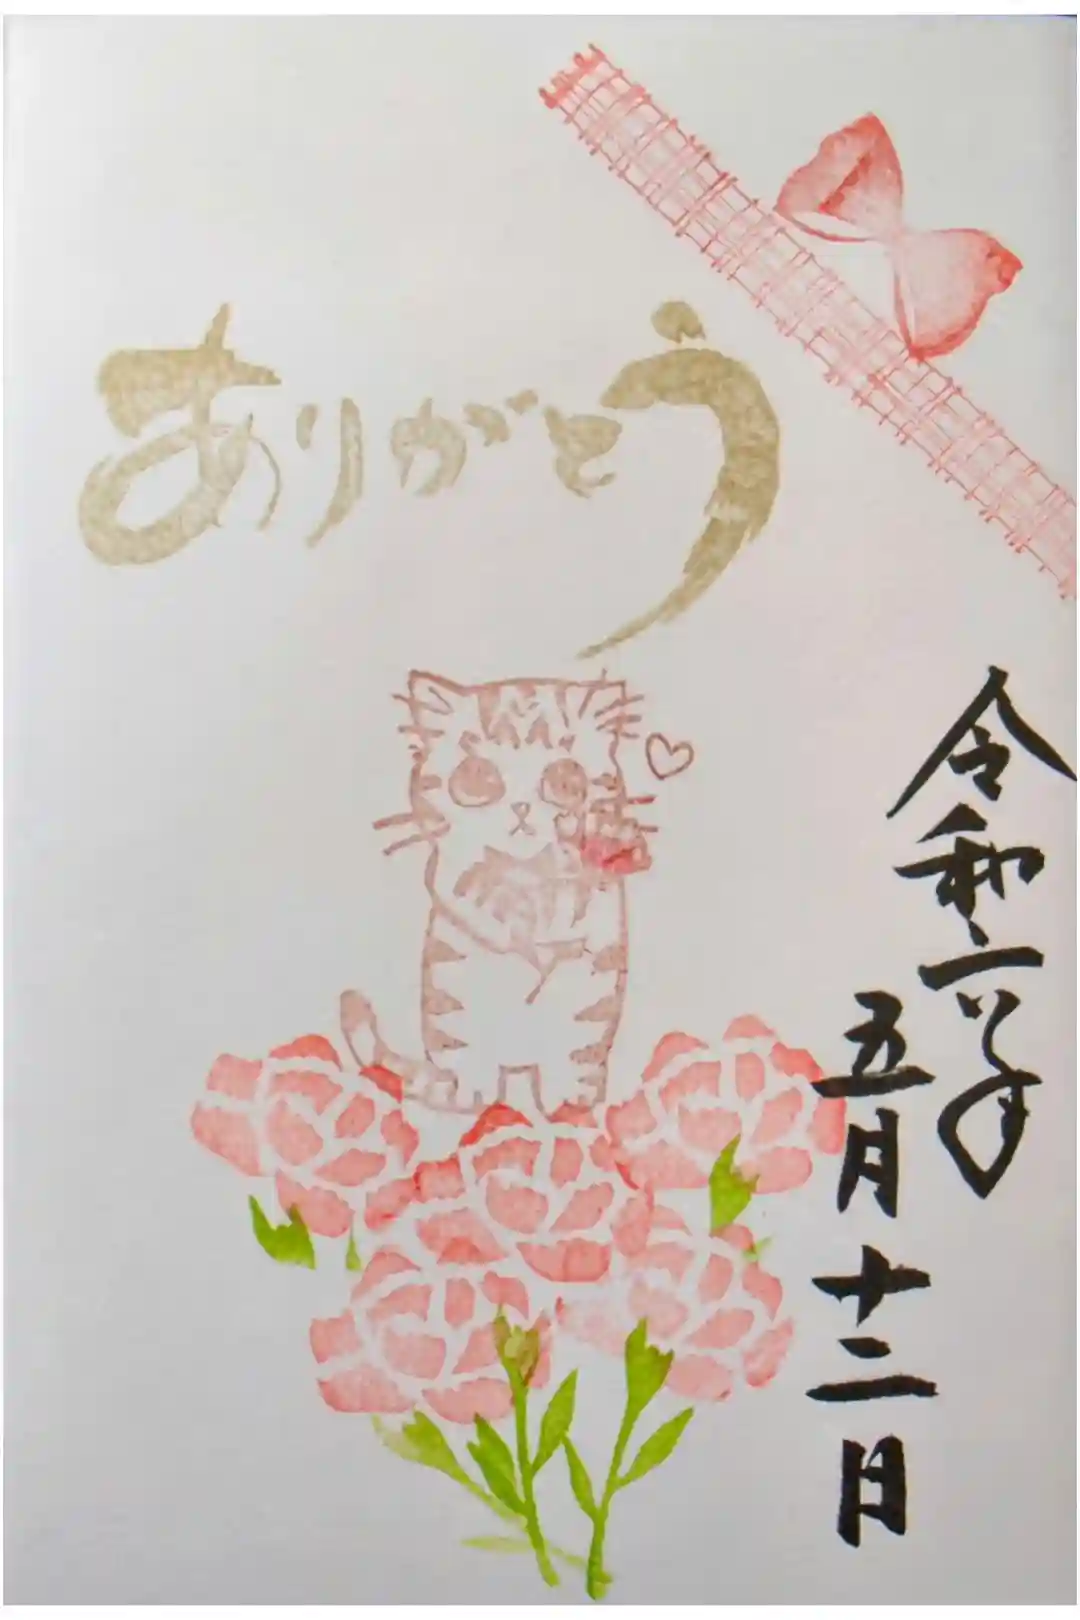 ありがとう
令和六年
五月十二日